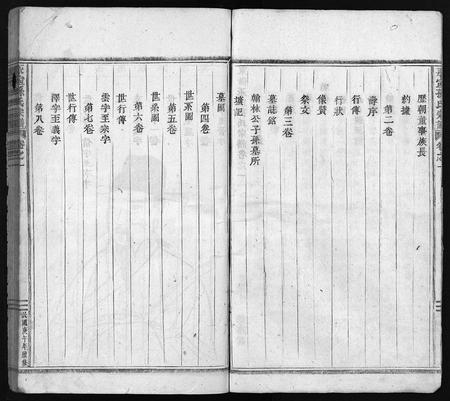 歷朝董事族長
約據
第二卷
壽序
行傳
行狀
像贊
祭文
第三卷
墓誌銘
翰林公子孫墓所
墳記
墓圖
第四卷
世系圖
第五卷
世系圖
第六卷
世行傳
雲字至宗字
第七卷
世行傳
澤字至義字
第八卷
民國庚午年續修